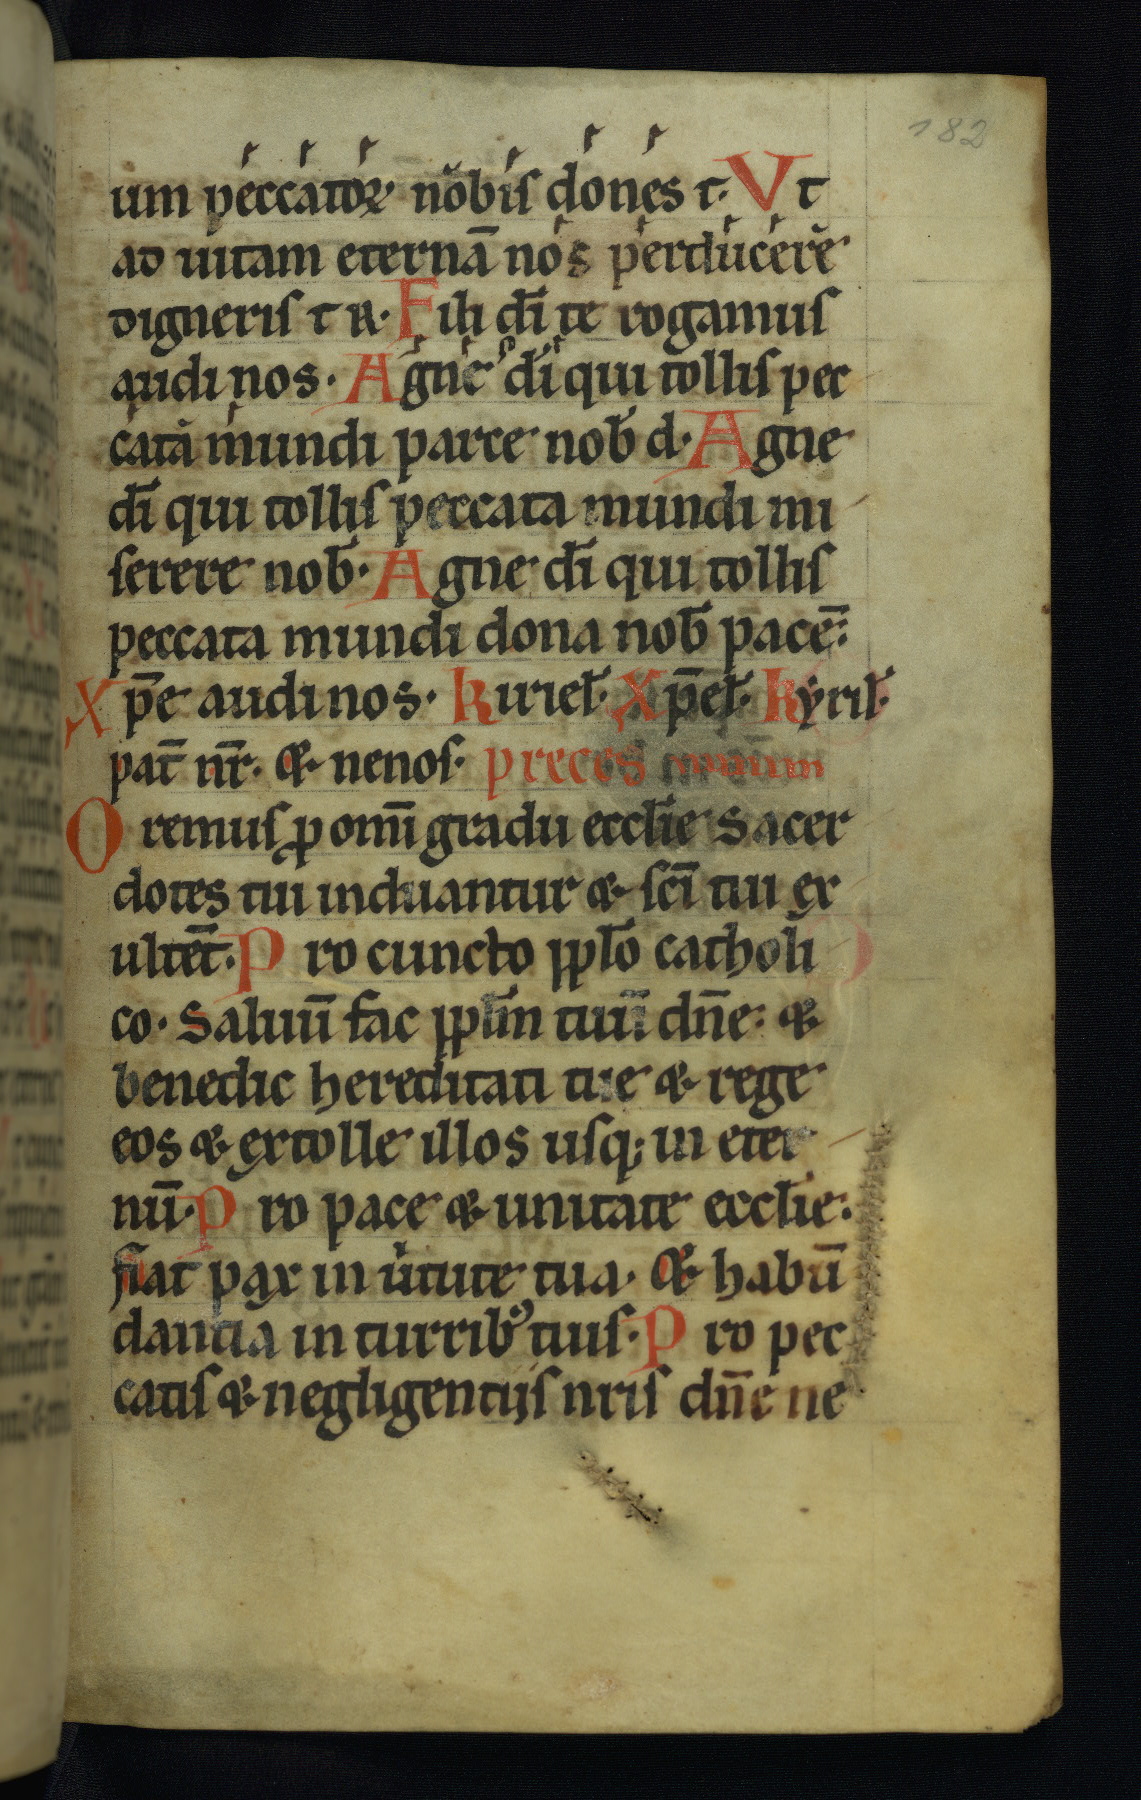 182
um peccatoꝝ nobis dones t. Vt
ad uitam eternā nos perducere
digneris t R. Fili dī te rogamus
audi nos. Agne dī qui tollis pec
cata mundi parce nob̄ d. Agne
dī qui tollis peccata mundi mi
serere nob̄. Agne dī qui tollis
peccata mundi dona nob̄ pacē:
Xp̄e audi nos. Kiriel̄. Xp̄el̄. Kyril̄.
pat̄ nr̄. & nenos. preces
Oremus ꝓ omī gradu eccl̄ie Sacer
dotes tui induantur & sc̄i tui ex
ultēt. Pro cuncto ppl̄o catholi
co. Saluū fac ppl̄m tuū dn̄e: &
benedic hereditati tue & rege
eos & extolle illos usq; in eter
nū. Pro pace & unitate eccl̄ie:
fiat pax in uͥtute tua. & habū
dantia in turribꝰ tuis. Pro pec
catis & negligentijs nr̄is dn̄e ne